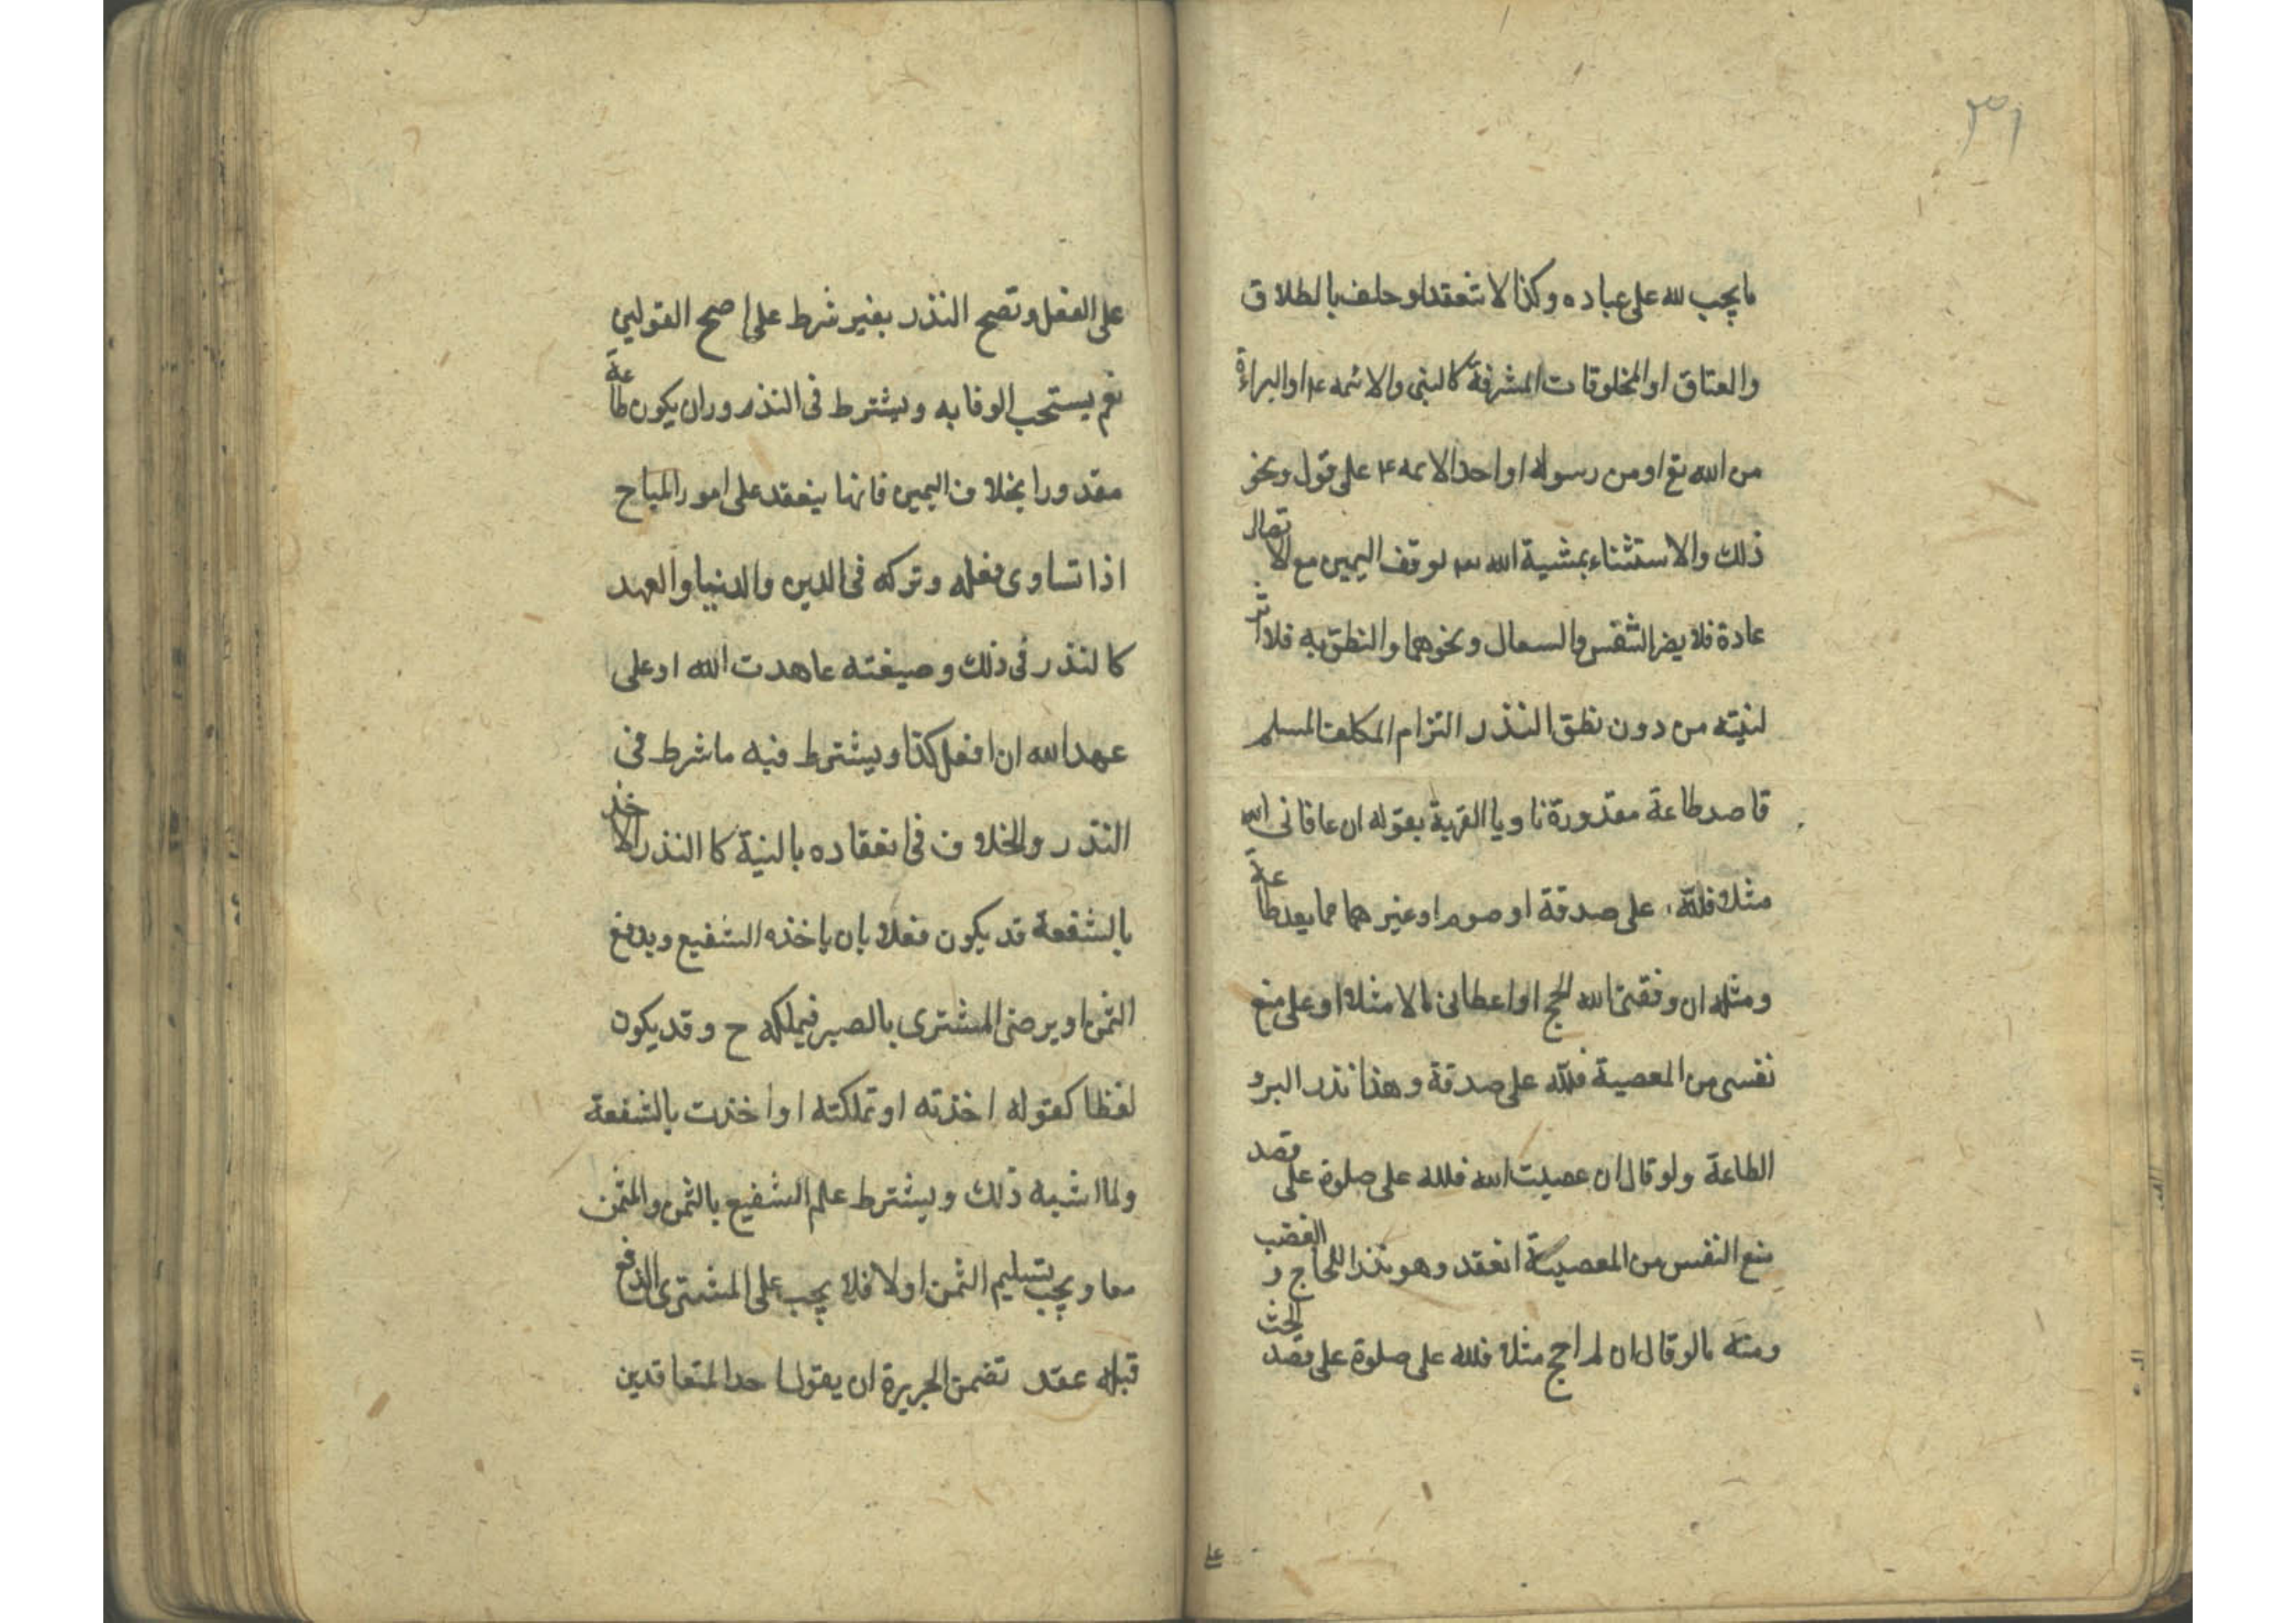 ٣١
ما يجب لله على عباده وكذا لا تنعقد لو حلف بالطلاق
والعتاق او المخلوقات المشرفة كالنبى والائمه ع م او البراءة
من الله تع او من رسوله او احد الائمه ع على قول ونحو
ذلك والاستثناء بمشية الله يوقف اليمين مع الاتصال
عادة فلا يضر التنفس والسعال ونحوهما والنطق به فلا اثر
لنيته من دون نطق النذر التزام المكلف المسلم
قاصد طاعة مقدورة ناويا القربة بقوله ان عافانى الله
مثلا فلله على صدقة او صوم او غيرهما مما يعد طاعة
ومثله ان وفقنى الله للحج او اعطانى مالا مثلا او على منع
نفسى من المعصية فلله على صدقة وهذا نذر البر و
الطاعة ولو قال ان عصيت الله فلله على صلوة على قصد
منع النفس من المعصية انعقد وهو نذر اللجاج و الغضب
ومنه ما لو قال ان لم احج مثلا فلله على صلوة على قصد الحث
على
على الفعل وتصح النذر بغير شرط على اصح القولين
نعم يستحب الوفا به ويشترط فى النذر وران يكون طاعة
مقدورا بخلاف اليمين فانها ينعقد على امور المباح
اذا تساوى فعله وتركه فى الدين والدنيا والعهد
كالنذر فى ذلك وصيغته عاهدت الله او على
عهد الله ان افعل كذا ويشترط فيه ما شرط فى
النذر والخلاف فى انعقاده بالنية كا النذر الاخذ
بالشفعة قد يكون فعلا بان ياخذه الشفيع ويدفع
الثمن او يرضى المشترى بالصبر فيملكه ح وقد يكون
لفظا كقوله اخذته او تملكته او اخذت بالشفعة
ولما اشبه ذلك ويشترط علم الشفيع بالثمن والمثمن
معا ويجب تسليم الثمن اولا فلا يجب على المشترى الدفع
قبله عقد تضمن الجريرة ان يقول احد المتعاقدين